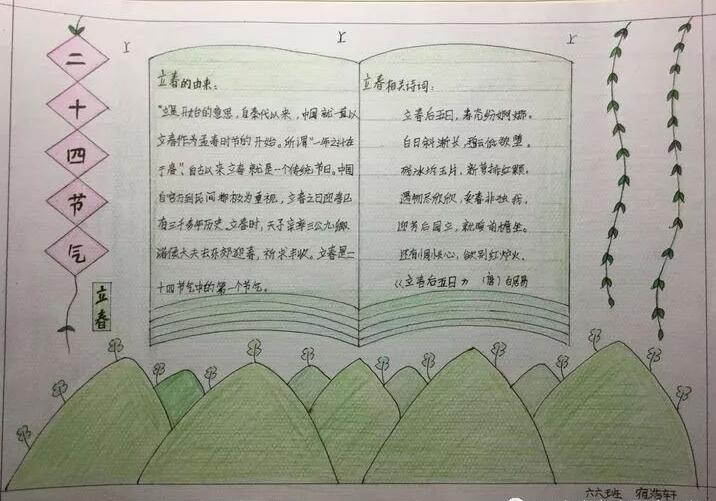 二十四节气
立春
立春的由来：
"立"是开始的意思，自秦代以来，中国就一直以
立春作为孟春时节的开始。所谓"一年之计在
于春"，自古以来立春就是一个传统节日。中国
自官方到民间都极为重视，立春之日迎春已
有三千多年历史。立春时，天子亲率三公九卿、
诸侯大夫去东郊迎春，祈求丰收。立春是二
十四节气中的第一个节气。
立春相关诗词：
立春后五日，春态纷婀娜。
白日斜渐长，碧云低欲堕。
残冰坼玉片，新萼排红颗。
遇物尽欣欣，爱春非独我。
迎芳后园立，就暖前檐坐。
还有惆怅心，欲别红炉火。
《立春后五日》（唐）白居易
六六班 宿浩轩